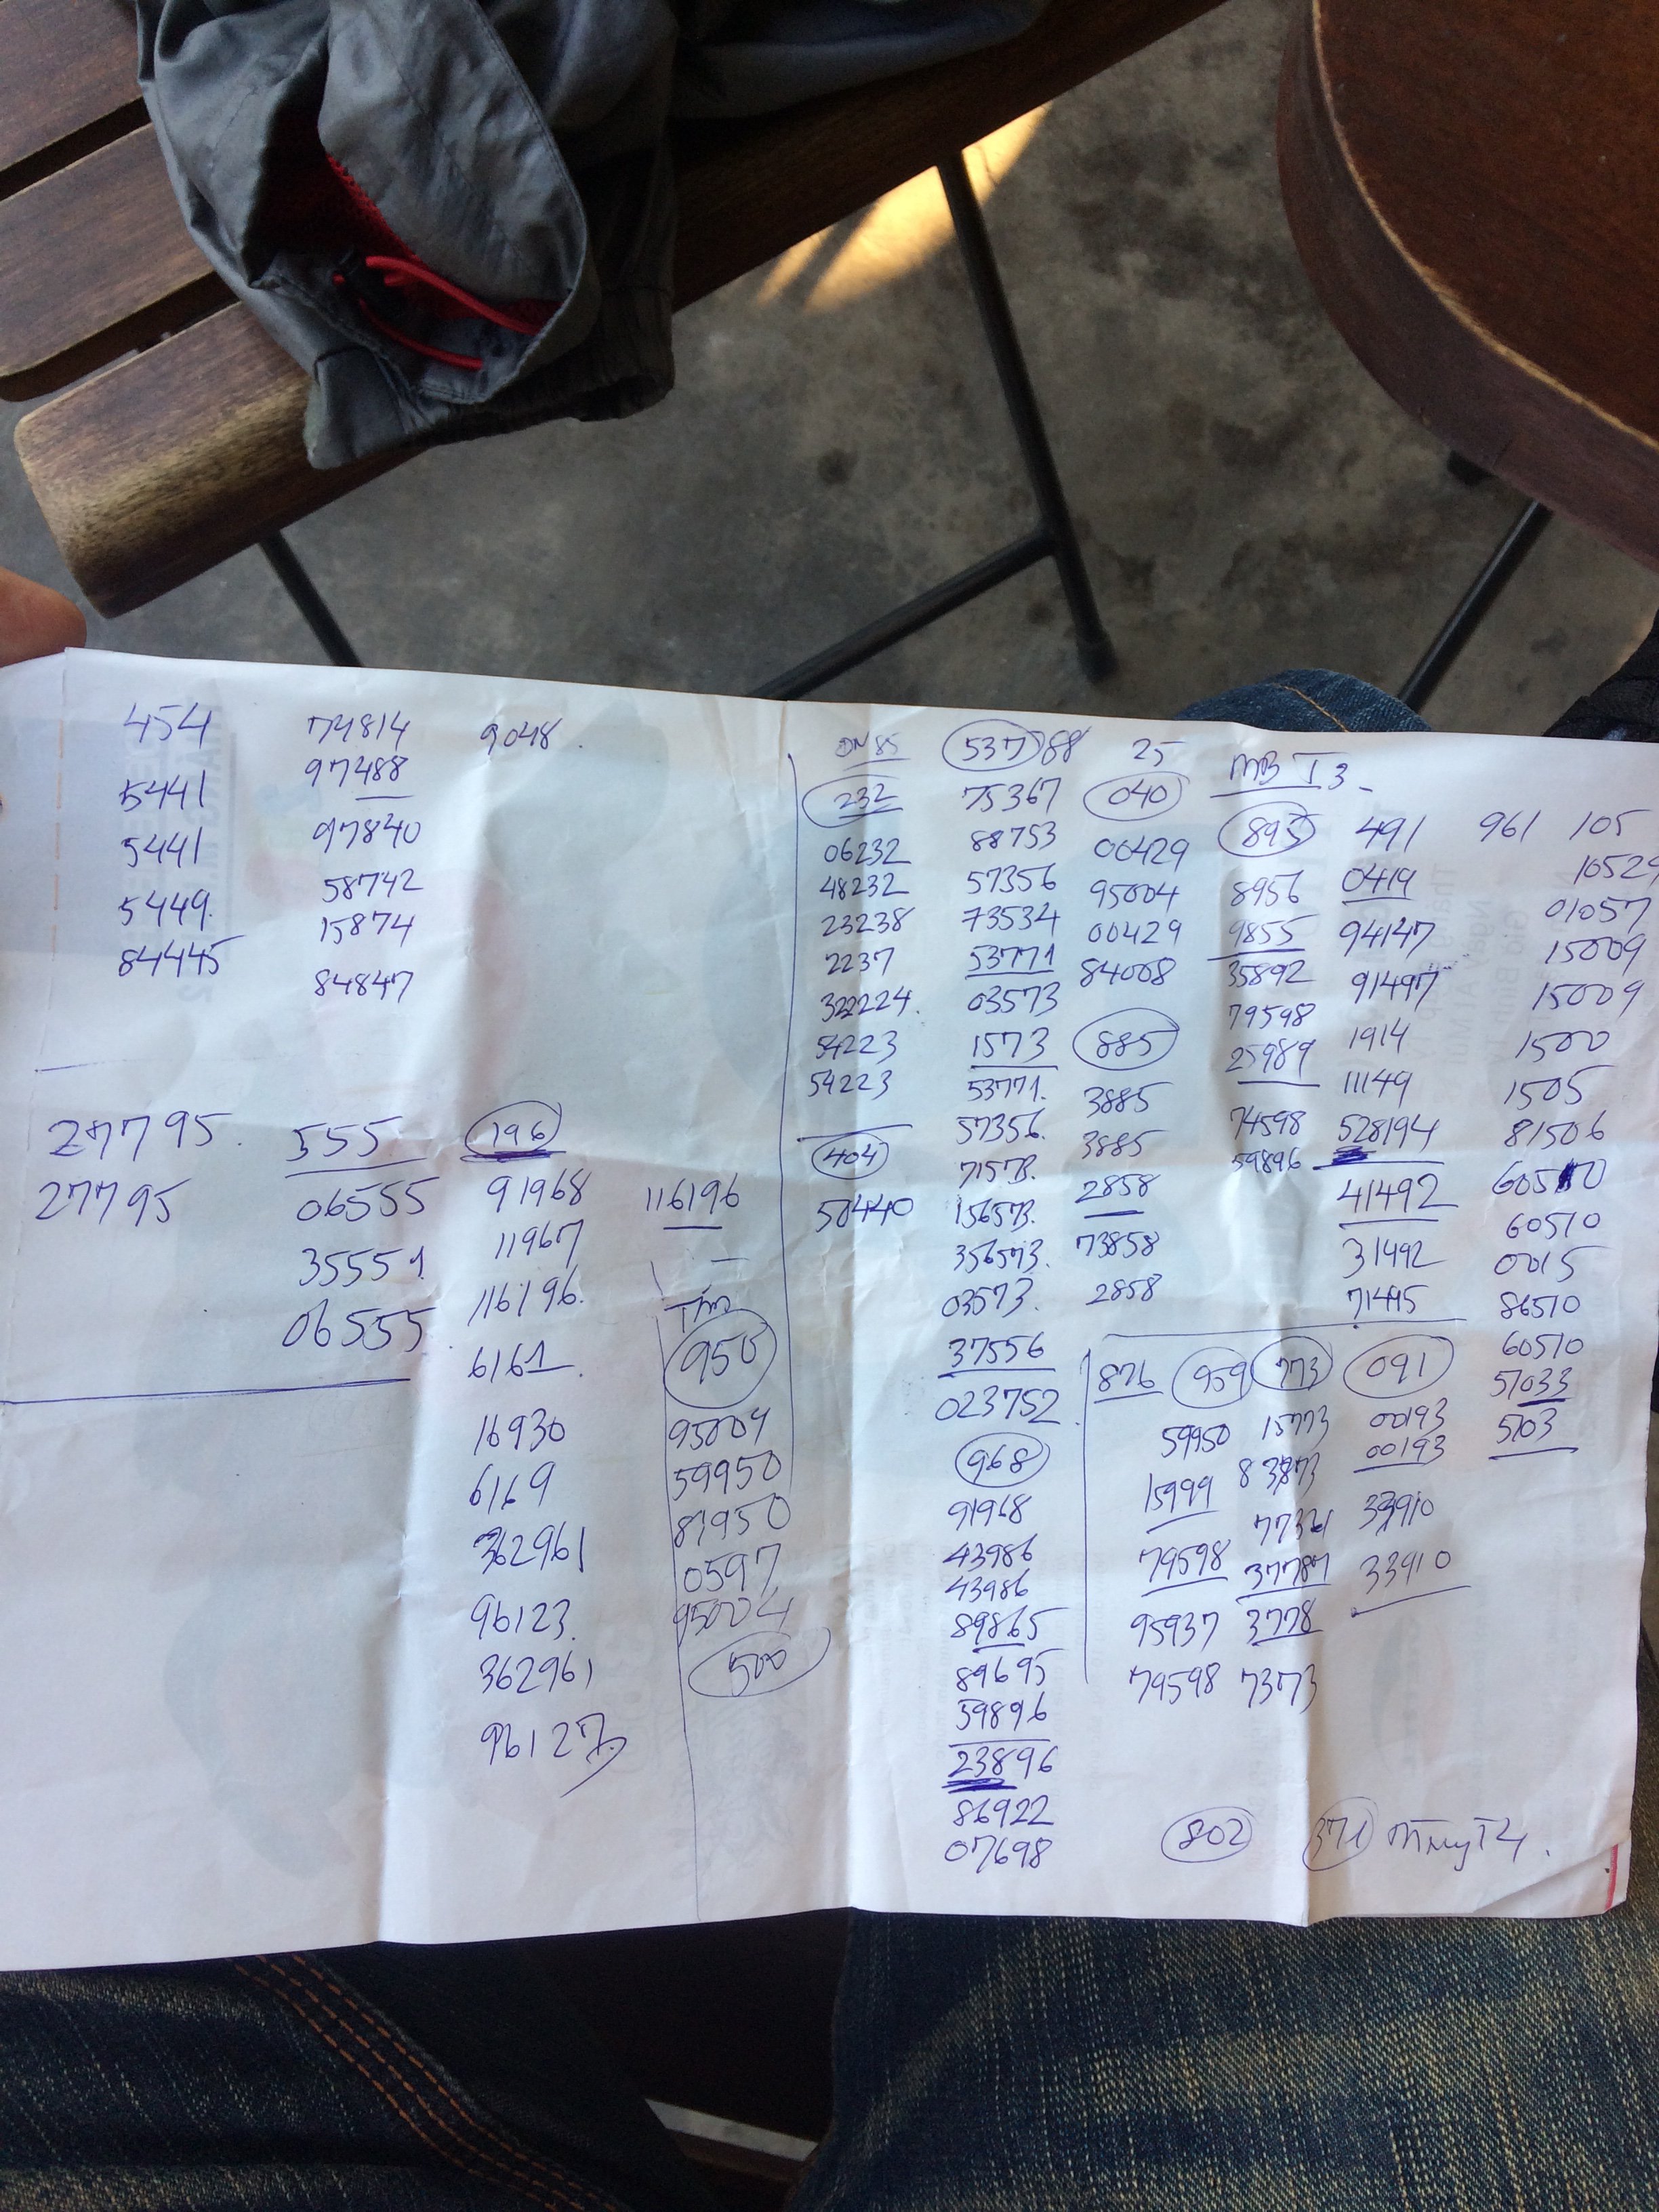 454
5441
5441
5449.
84445
74814
97488
97840
58742
15874
84847
9048.
27795.
27795
555
06555
35551.
06555
196
91968
11967
116196.
6161.
16930
6169
362961
96123.
362961
96127
116196
950
95004
59950
81950
0597
95004
500
ĐN 85
232
06232
48232
23238
2237
322224.
54223
54223
404
50440
537 88
75367
88753
57356
73534
53771
03573
1573
53771.
57356.
71573.
156573.
356573.
03573.
37556
023752.
968
91968
43986
43986
89865
89695
59896
23896
86922
07698
25
040
00429
95004
00429
84008
885
3885
3885
2858
73858
2858
MB T3-
895
8956
9855
35892
79598
25989
74598
59896
491
0419
94147
91497
1914
11149
528194
41492
31492
71495
961
105
10529
01057
15009
15009
1500
1505
81506
60510
60510
0015
86510
60510
51033
5103
876
959
59950
15999
79598
95937
79598
773
15773
83873
77361
37787
3778
7373
091
00193
00193
33910
33910
802
371